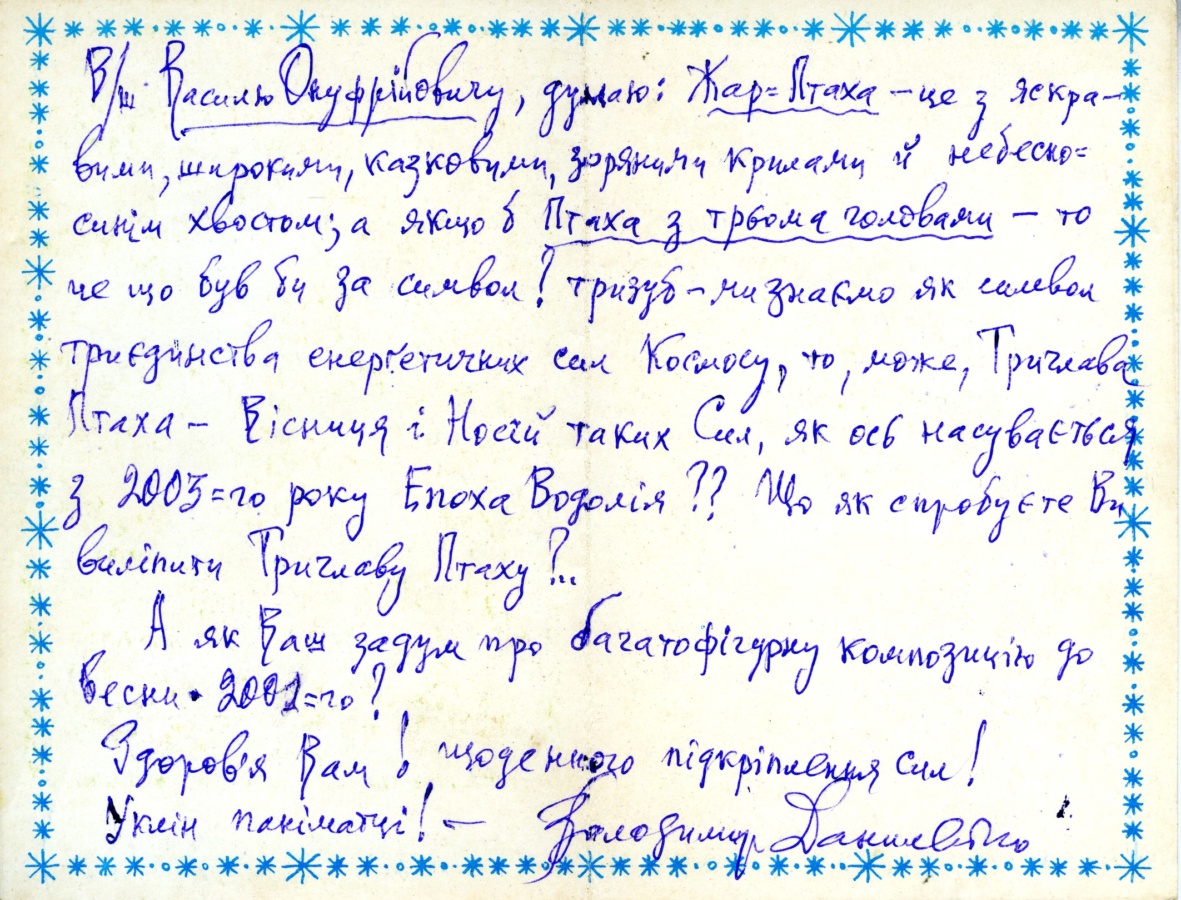 В/ш. Василю Онуфрійовичу, думаю: Жар=Птаха – це з яскра–
вими, широкими, казковими, зоряними крилами й небесно=
синім хвостом; а якщо б Птаха з трьома головами – то
це що був би за символ? Тризуб – ми знаємо як символ
триєдинства енерґетичних сил Космосу, то, може, Триглава
Птаха – Вісниця і Носій таких Сил, як ось насувається
з 2003=го року Епоха Водолія?? Що як спробуєте Ви
виліпити Триглаву Птаху?..
А як Ваш задум про багатофігурну композицію до
весни 2001=го?
Здоров'я Вам! щоденного підкріплення сил!
Уклін паніматці! – Володимир